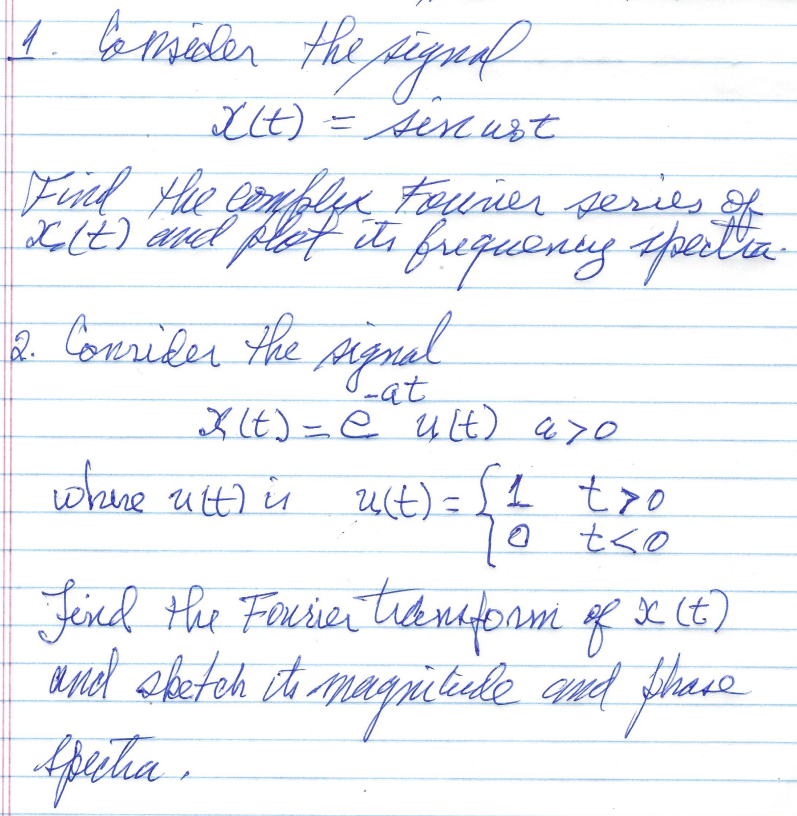 1. Consider the signal
x(t) = sin ω₀t
Find the complex Fourier series of
x(t) and plot its frequency spectra.
2. Consider the signal
x(t) = e^{-at} u(t) a>0
where u(t) is u(t) = { 1 t>0
0 t<0
Find the Fourier transform of x(t)
and sketch its magnitude and phase
spectra.